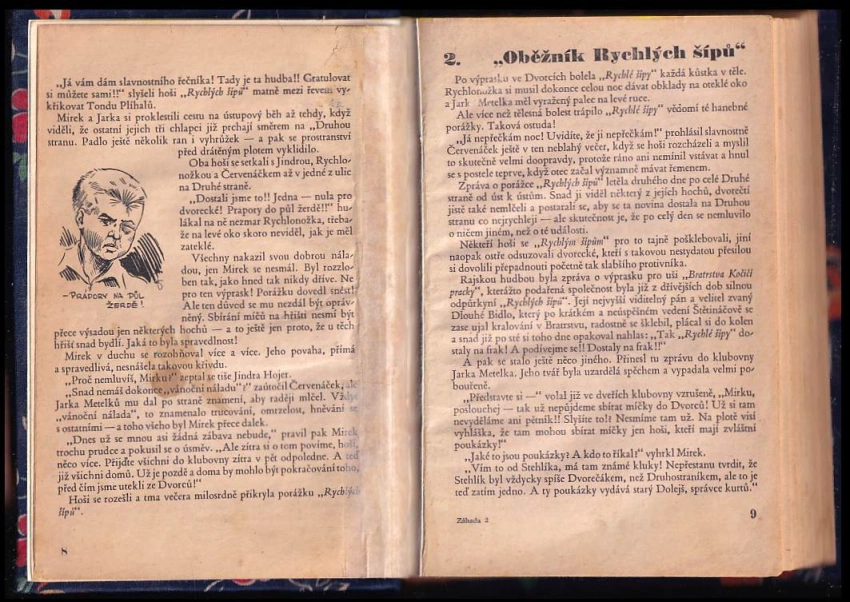 „Já vám dám slavnostního řečníka! Tady je ta hudba!! Gratulovat
si můžete sami!!" slyšeli hoši „Rychlých šípů" matně mezi řevem vy-
křikovat Tondu Plíhalů.
Mirek a Jarka si proklestili cestu na ústupový běh až tehdy, když
viděli, že ostatní jejich tři chlapci již prchají směrem na „Druhou
stranu. Padlo ještě několik ran i vyhrůžek — a pak se prostranství
před drátěným plotem vyklidilo.
Oba hoši se setkali s Jindrou, Rychlo-
nožkou a Červenáčkem až v jedné z ulic
na Druhé straně.
„Dostali jsme to!! Jedna — nula pro
dvorecké! Prapory do půl žerdě!!" hu-
lákal na ně nezmar Rychlonožka, třeba-
že na levé oko skoro neviděl, jak je měl
zateklé.
Všechny nakazil svou dobrou nála-
dou, jen Mirek se nesmál. Byl rozzlo-
ben tak, jako hned tak nikdy dříve. Ne
pro ten výprask! Porážku dovedl snést!
Ale ten důvod se mu nezdál být opráv-
něný. Sbírání míčů na hřišti nesmí být
přece výsadou jen některých hochů — a to ještě jen proto, že u těch
hřišť snad bydlí. Jaká to byla spravedlnost!
Mirek v duchu se rozohňoval více a více. Jeho povaha, přímá
a spravedlivá, nesnášela takovou křivdu.
„Proč nemluvíš, Mirku?" zeptal se tiše Jindra Hojer.
„Snad nemáš dokonce „vánoční náladu"?" zaútočil Červenáček, ale
Jarka Metelků mu dal po straně znamení, aby raději mlčel. Vždy
„vánoční nálada", to znamenalo trucování, omrzelost, hněvání se
s ostatními — a toho všeho byl Mirek přece dalek.
„Dnes už se mnou asi žádná zábava nebude," pravil pak Mirek
trochu prudce a pokusil se o úsměv. „Ale zítra si o tom povíme, hoši,
něco více. Přijďte všichni do klubovny zítra v pět odpoledne. A teď
již všichni domů. Už je pozdě a doma by mohlo být pokračování toho,
před čím jsme utekli ze Dvorců!"
Hoši se rozešli a tma večera milosrdně přikryla porážku „Rychlých
šípů".
— PRAPORY NA PŮL
ŽERDĚ!
8
2. „Oběžník Rychlých šípů"
Po výprasku ve Dvorcích bolela „Rychlé šípy" každá kůstka v těle.
Rychlonožka si musil dokonce celou noc dávat obklady na oteklé oko
a Jarka Metelka měl vyražený palec na levé ruce.
Ale více než tělesná bolest trápilo „Rychlé šípy" vědomí té hanebné
porážky. Taková ostuda!
„Já nepřečkám noc! Uvidíte, že ji nepřečkám!" prohlásil slavnostně
Červenáček ještě v ten neblahý večer, když se hoši rozcházeli a myslil
to skutečně velmi doopravdy, protože ráno ani nemínil vstávat a hnul
se s postele teprve, když otec začal významně mávat řemenem.
Zpráva o porážce „Rychlých šípů" letěla druhého dne po celé Druhé
straně od úst k ústům. Snad ji viděl některý z jejích hochů, dvorečtí
jistě také nemlčeli a postarali se, aby se ta novina dostala na Druhou
stranu co nejrychleji — ale skutečnost je, že po celý den se nemluvilo
o ničem jiném, než o té události.
Někteří hoši se „Rychlým šípům" pro to tajně pošklebovali, jiní
naopak ostře odsuzovali dvorecké, kteří s takovou nestydatou přesilou
si dovolili přepadnouti početně tak slabšího protivníka.
Rajskou hudbou byla zpráva o výprasku pro uši „Bratrstva Kočičí
pracky", kterážto podařená společnost byla již z dřívějších dob silnou
odpůrkyní „Rychlých šípů". Její nejvyšší viditelný pán a velitel zvaný
Dlouhé Bidlo, který po krátkém a neúspěšném vedení Štětináčově se
zase ujal kralování v Bratrstvu, radostně se šklebil, plácal si do kolen
a snad již po sté si toho dne opakoval nahlas: „Tak „Rychlé šípy" do-
staly na frak! A podívejme se!! Dostaly na frak!!"
A pak se stalo ještě něco jiného. Přinesl tu zprávu do klubovny
Jarka Metelka. Jeho tvář byla uzardělá spěchem a vypadala velmi po-
bouřeně.
„Představte si —" volal již ve dveřích klubovny vzrušeně, „Mirku,
poslouchej — tak už nepůjdeme sbírat míčky do Dvorců! Už si tam
nevyděláme ani pětník!! Slyšíte to?! Nesmíme tam už. Na plotě visí
vyhláška, že tam mohou sbírat míčky jen hoši, kteří mají zvláštní
poukázky!"
„Jaké to jsou poukázky? A kdo to říkal?" vyhrkl Mirek.
„Vím to od Stehlíka, má tam známé kluky! Nepřestanu tvrdit, že
Stehlík byl vždycky spíše Dvorečákem, než Druhostraníkem, ale to je
teď zatím jedno. A ty poukázky vydává starý Dolejš, správce kurtů."
Záhada 2
9